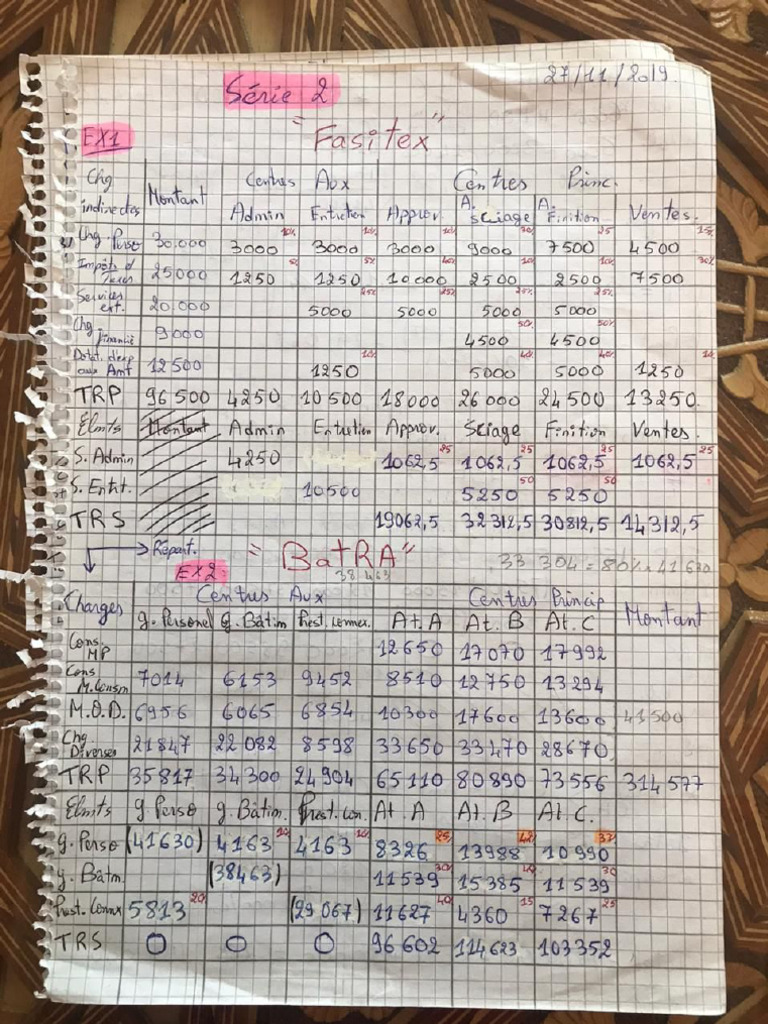 27/11/2019
Série 2
"Fasitex"
EX1
Chg indirectes Montant Centres Aux Centres Princ.
Admin Entretien Approv. A. Sciage A. Finition Ventes.
Chg. Perso 30.000 3000 10% 3000 10% 3000 10% 9000 30% 7500 25 4500 15%
Impôts et Taxes 25000 1250 5% 1250 5% 10000 40% 2500 10% 2500 10% 7500 30%
Services ext. 20.000 5000 25% 5000 25% 5000 25% 5000 25%
Chg. Financiè 9000 4500 50% 4500 50%
Dotat. d'exp aux Amt 12500 1250 10% 5000 40% 5000 40% 1250 10
TRP 96500 4250 10500 18000 26000 24500 13250
Élmts Montant Admin Entretien Approv. Sciage Finition Ventes.
S. Admin 4250 1062,5 25 1062,5 25 1062,5 25 1062,5 25
S. Entrt. 10500 5250 50 5250 50
TRS 19062,5 32312,5 30812,5 14312,5
Répart. "BatRA" 33 304 = 80% x 41630
EX2 38 463
Charges Centres Aux Centres Princip Montant
g. Personel g. Bâtim Prest. connex. At. A At. B At. C
Cons. MP 12650 17070 17992
Cons M. Consm 7014 6153 9452 8510 12750 13294
M.O.D. 6956 6065 6854 10300 17600 13600 41500
Chg Diverses 21847 22082 8598 33650 33470 28670
TRP 35817 34300 24904 65110 80890 73556 314577
Elmts g. Perso g. Bâtim. Prest. Con. At. A At. B At. C.
g. Perso (41630) 4163 10 4163 10 8326 25 13988 42 10990 33
g. Bâtm. (38463) 11539 30 15385 40 11539 30
Prest. Connx 5813 20 (29067) 11627 40 4360 15 7267 25
TRS 0 0 0 96602 114623 103352